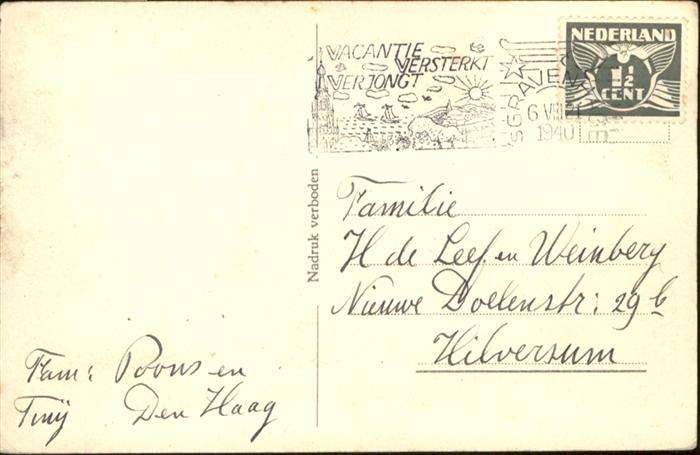 VACANTIE
VERSTERKT
VERJONGT
'SGRAVENH
6 VIII
1940
NEDERLAND
1½
CENT
Nadruk verboden
Familie
H de Leef en Weinberg
Nieuwe Doelenstr: 29 b
Hilversum
Fam: Poons en
Tinij Den Haag